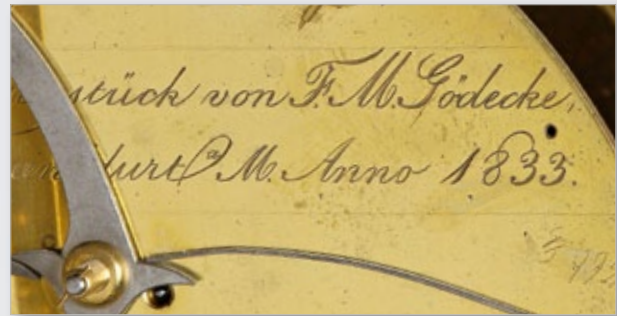 stück von F. M. Gödecke,
furt a. M. Anno 1833.